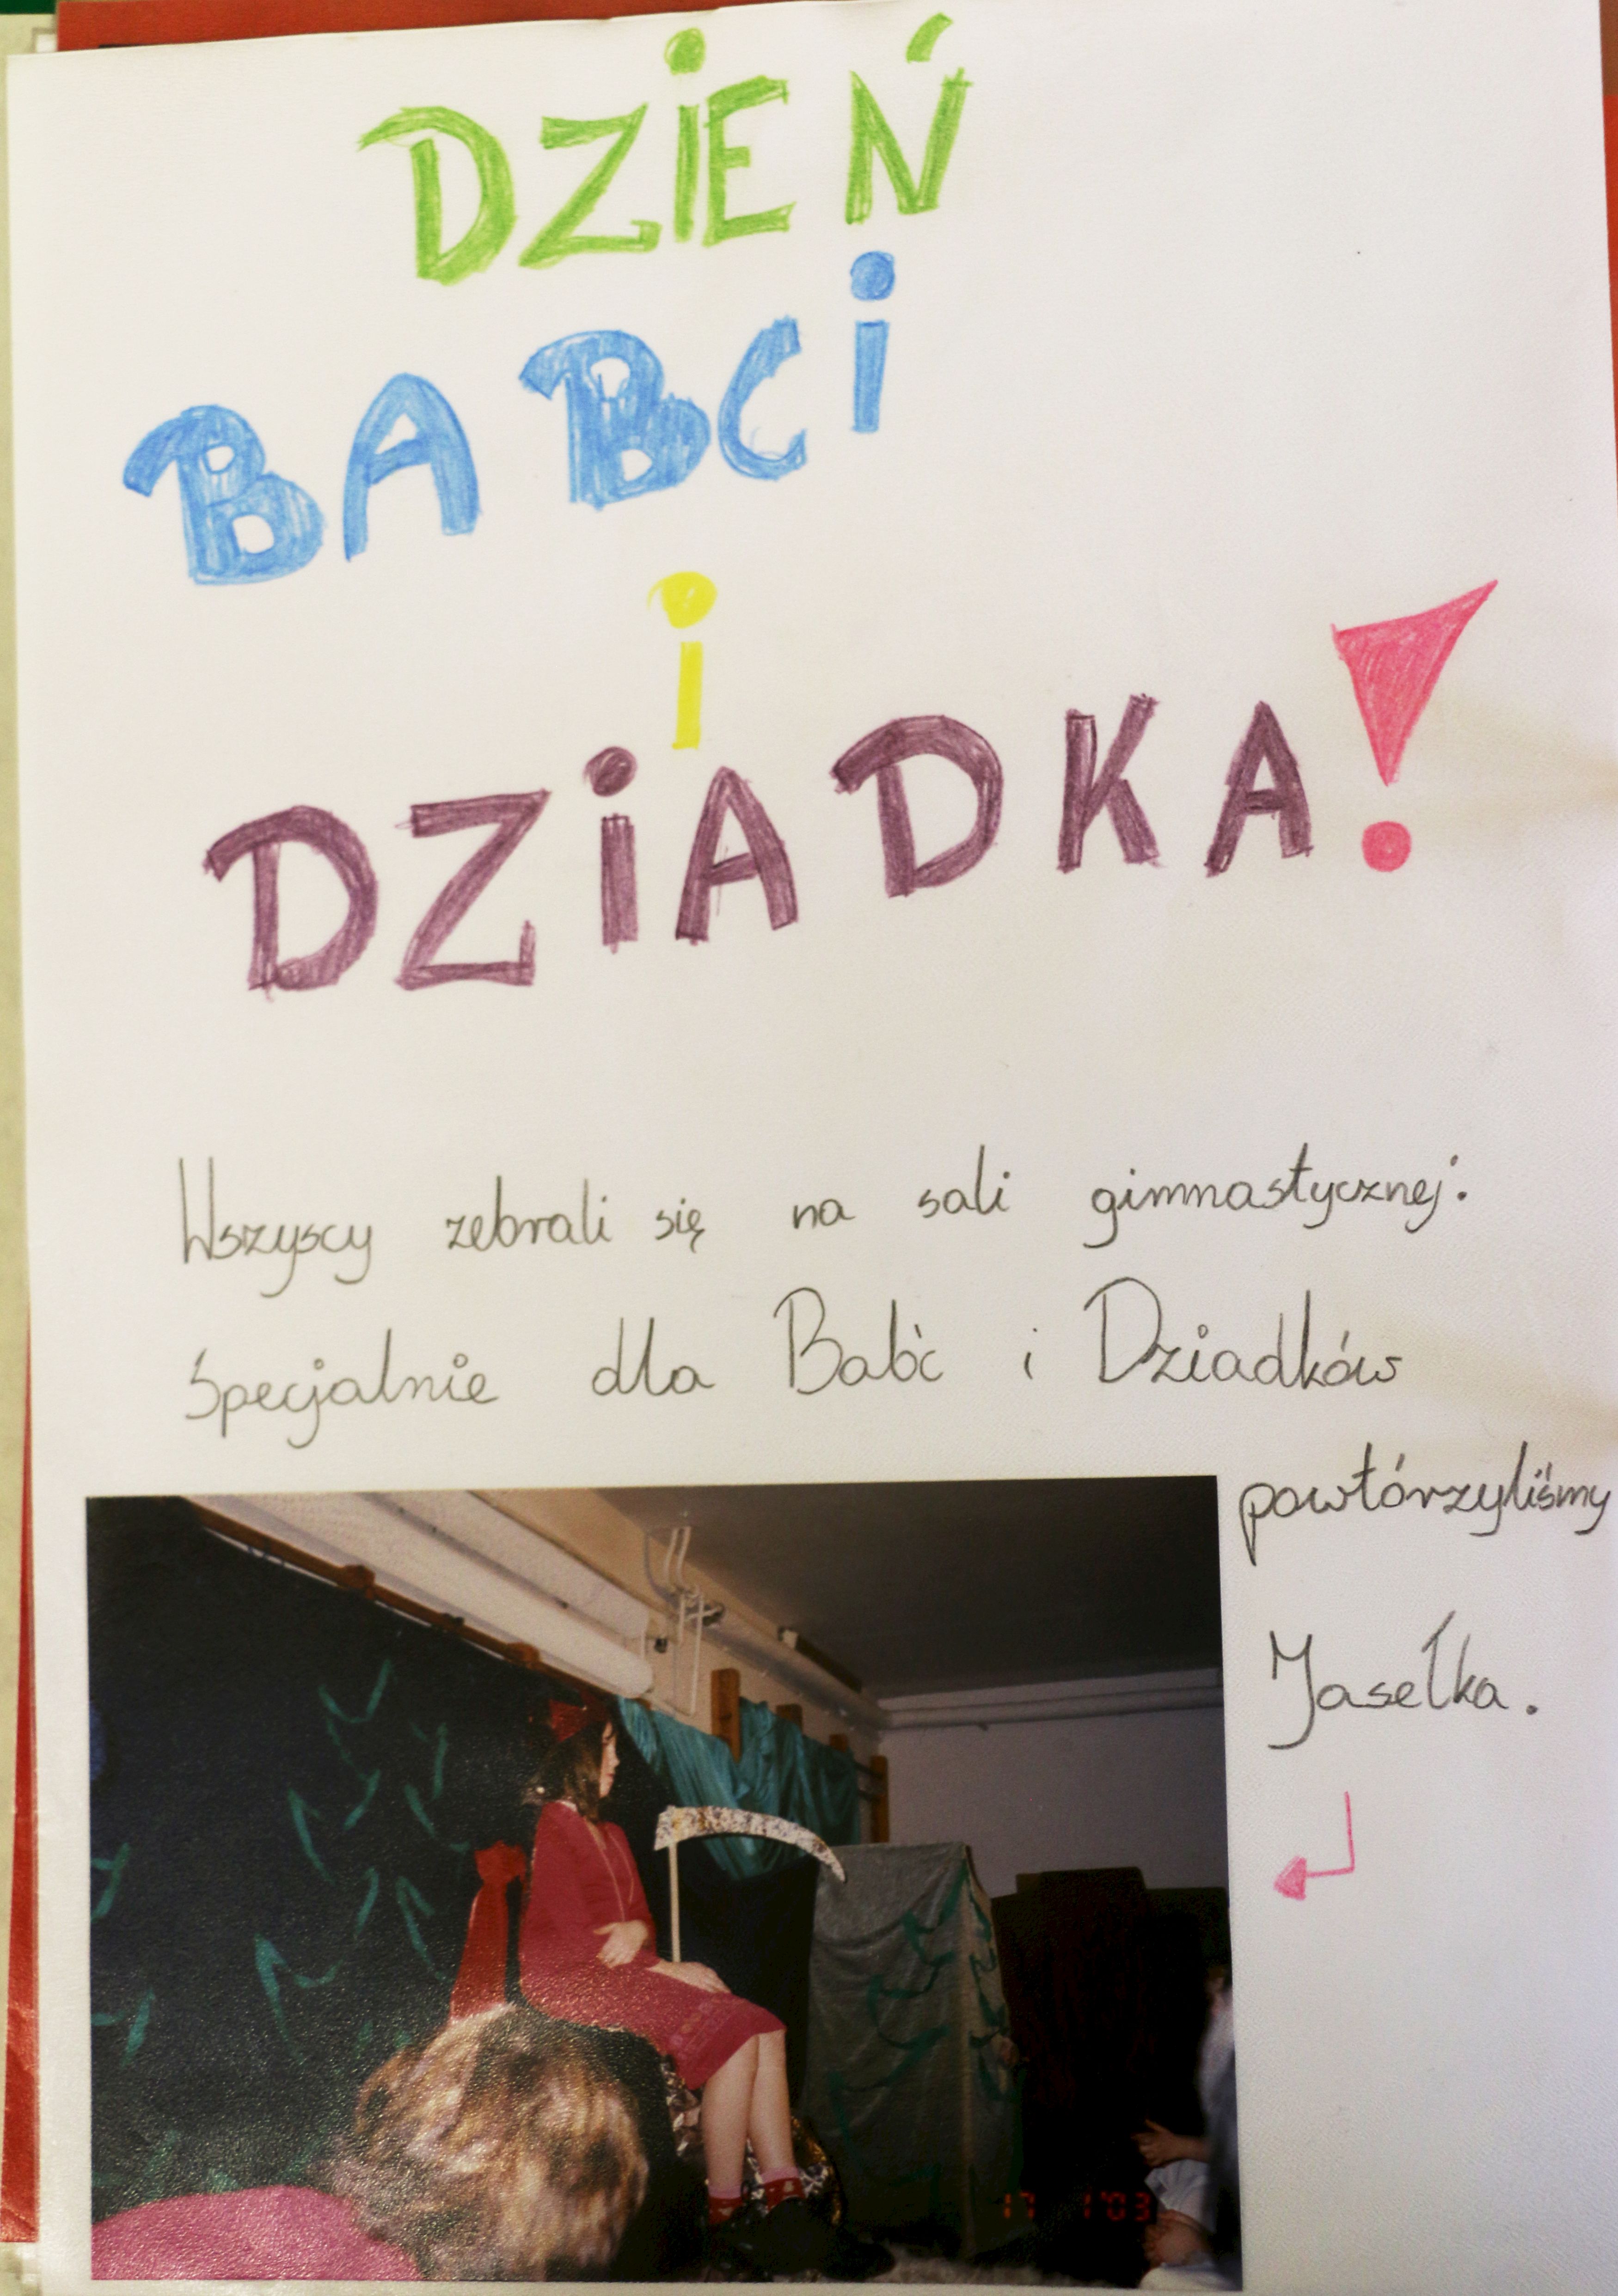 DZiEŃ
BABCi
i
DZiADKA!
Wszyscy zebrali się na sali gimnastycznej.
Specjalnie dla Babć i Dziadków
powtórzyliśmy
Jasełka.
17 1'03